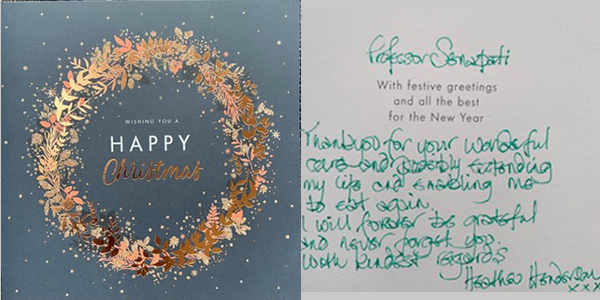 WISHING YOU A
HAPPY
Christmas
Professor Senapati
With festive greetings
and all the best
for the New Year
Thankyou for your wonderful
care and possibly extending
my life and enabling me
to eat again.
I will forever be grateful
and never forget you.
With kindest regards
Heather Henderson
xxx